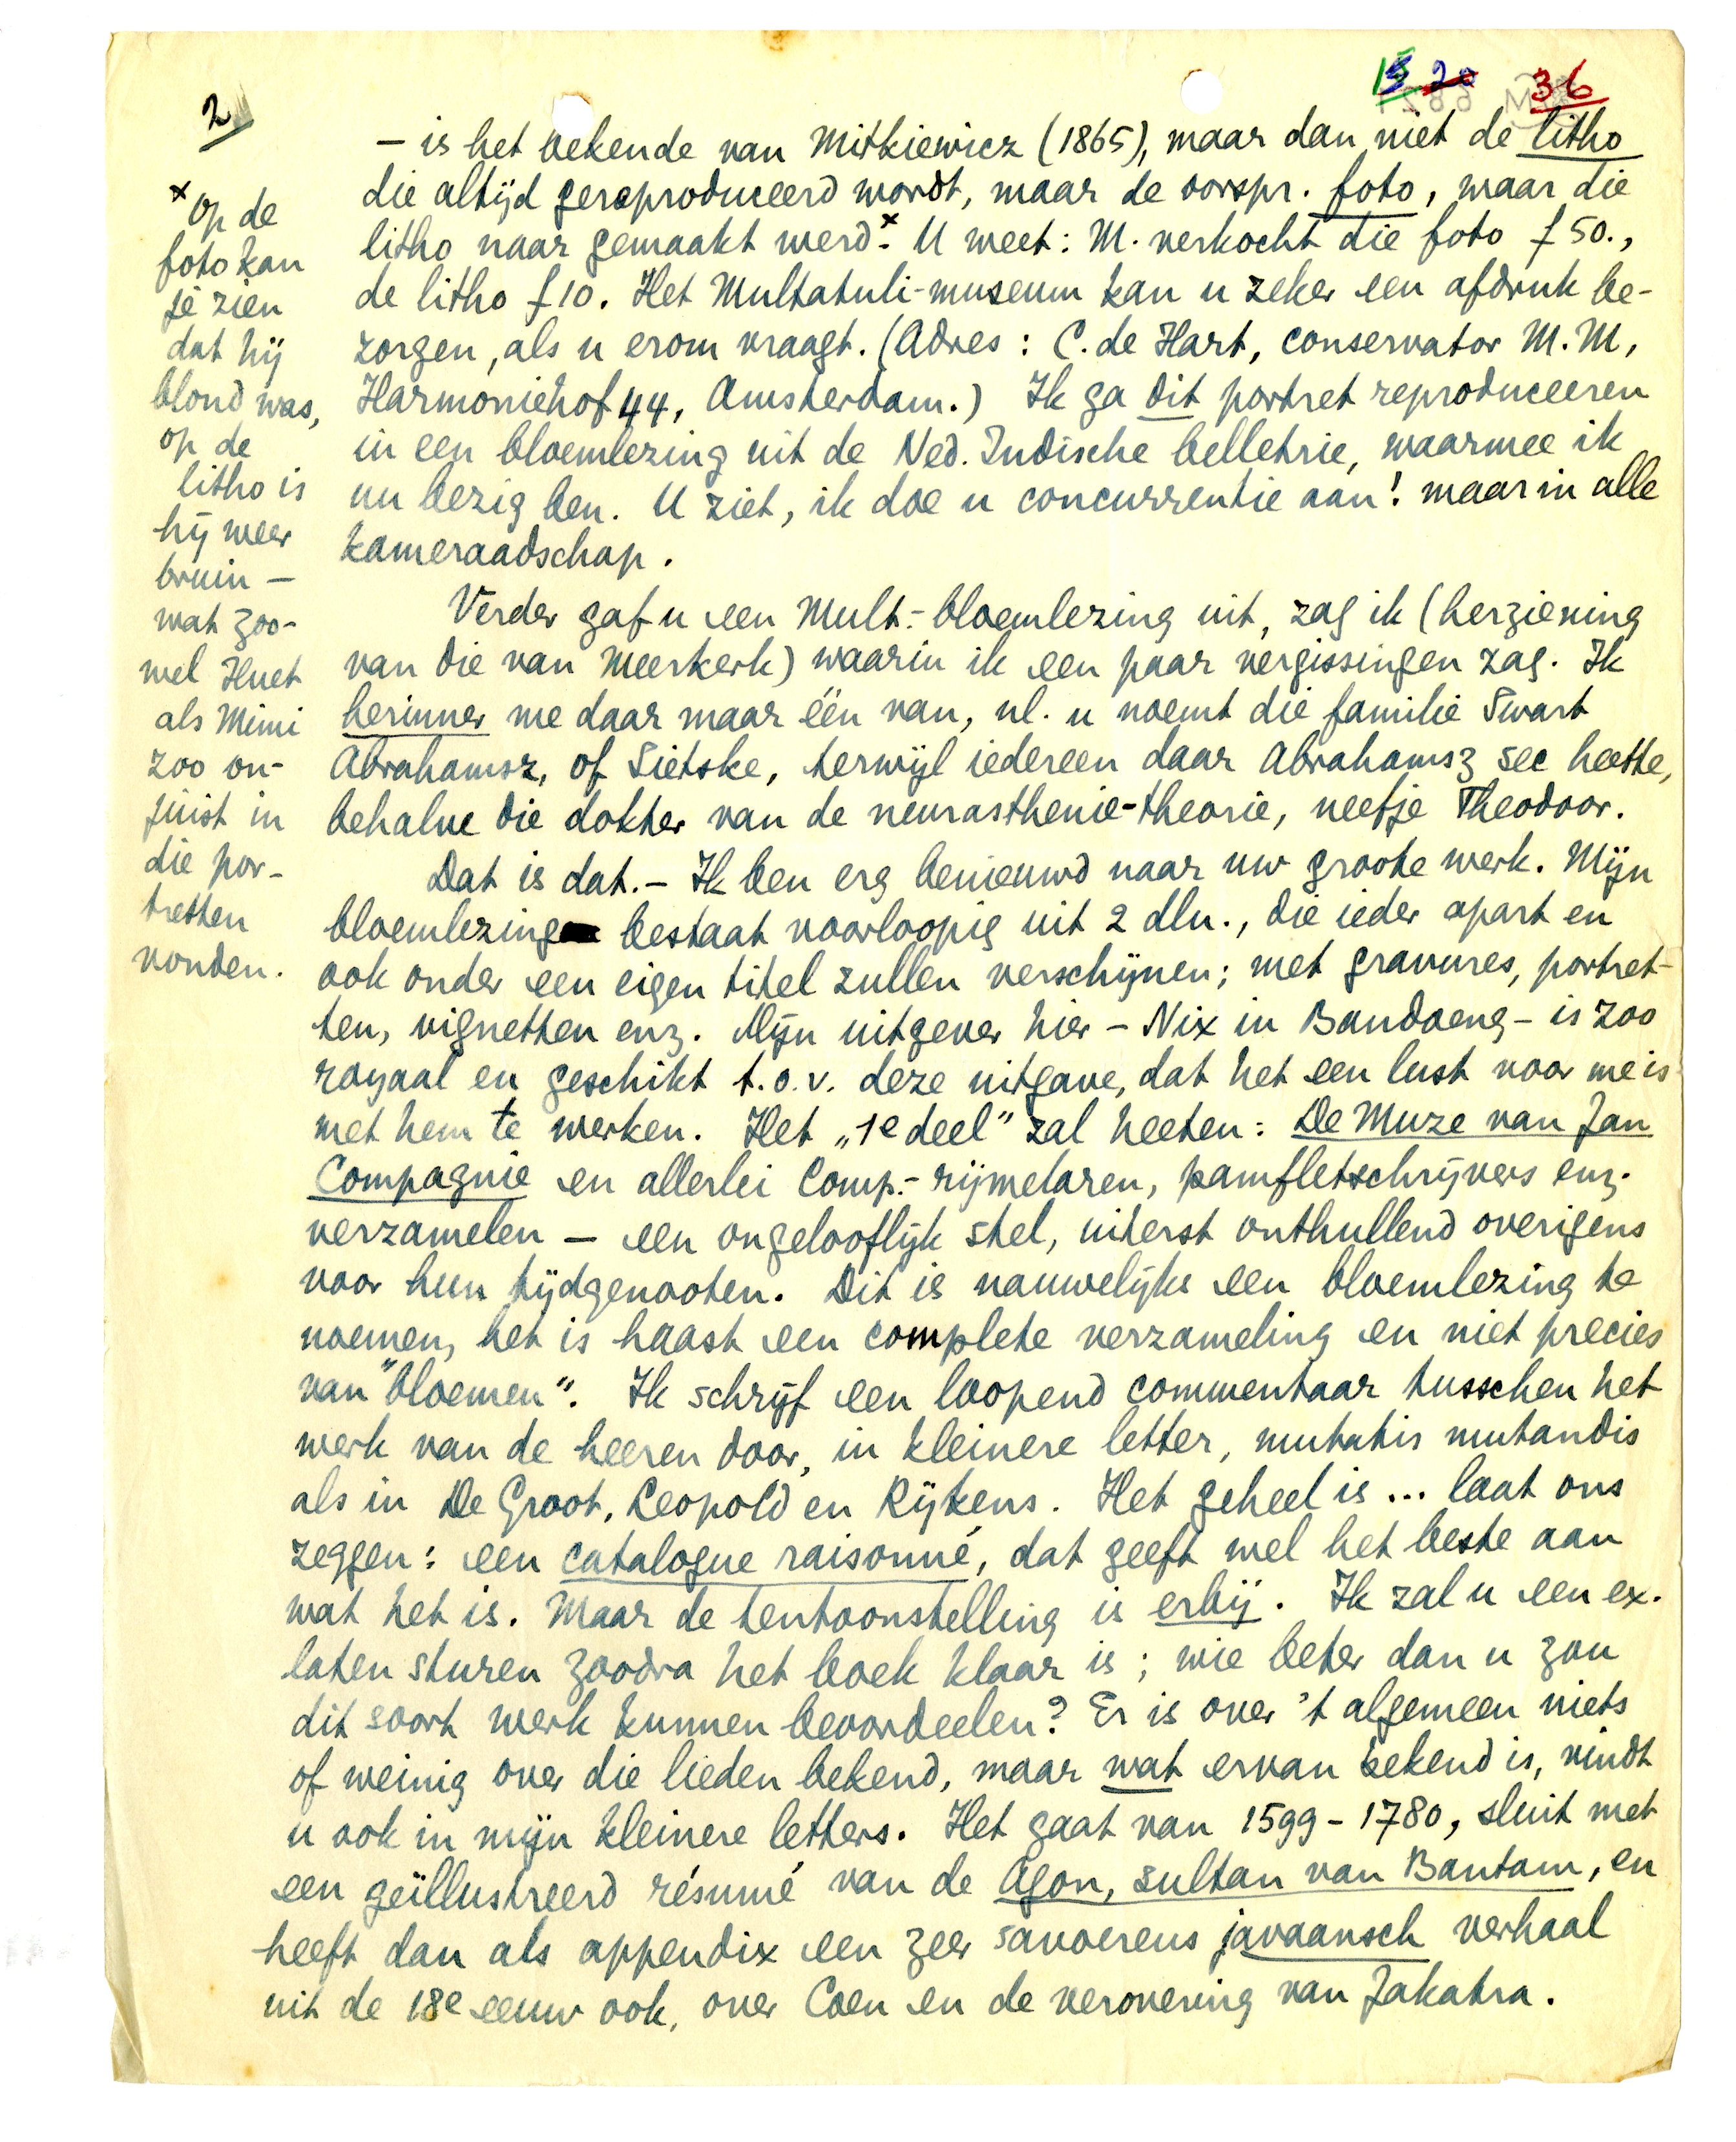 2
15 20 36
– is het bekende van Mitkiewicz (1865), maar dan niet de litho
die altijd gereproduceerd wordt, maar de oorspr. foto, waar die
litho naar gemaakt werd.x U weet: M. verkocht die foto f 50.,
de litho f 10. Het Multatuli-museum kan u zeker een afdruk be-
zorgen, als u erom vraagt. (Adres: C. de Hart, conservator M.M,
Harmoniehof 44, Amsterdam.) Ik ga dit portret reproduceeren
in een bloemlezing uit de Ned. Indische belletrie, waarmee ik
nu bezig ben. U ziet, ik doe u concurrentie aan! maar in alle
kameraadschap.
Verder gaf u een Mult.-bloemlezing uit, zag ik (herziening
van die van Meerkerk) waarin ik een paar vergissingen zag. Ik
herinner me daar maar één van, nl. u noemt die familie Swart
Abrahamsz, of Sietske, terwijl iedereen daar Abrahamsz sec heette,
behalve die dokter van de neurasthenie-theorie, neefje Theodoor.
Dat is dat. – Ik ben erg benieuwd naar uw groote werk. Mijn
bloemlezing bestaat voorloopig uit 2 dln., die ieder apart en
ook onder een eigen titel zullen verschijnen; met gravures, portret-
ten, vignetten enz. Mijn uitgever hier – Nix in Bandoeng – is zoo
royaal en geschikt t.o.v. deze uitgave, dat het een lust voor me is
met hem te werken. Het „1e deel” zal heeten: De Muze van Jan
Compagnie en allerlei Comp.-rijmelaren, pamfletschrijvers enz.
verzamelen – een ongelooflijk stel, uiterst onthullend overigens
voor hun tijdgenooten. Dit is nauwelijks een bloemlezing te
noemen, het is haast een complete verzameling en niet precies
van "bloemen". Ik schrijf een loopend commentaar tusschen het
werk van de heeren door, in kleinere letter, mutatis mutandis
als in De Groot, Leopold en Rijkens. Het geheel is ... laat ons
zeggen: een catalogue raisonné, dat geeft wel het beste aan
wat het is. Maar de tentoonstelling is erbij. Ik zal u een ex.
laten sturen zoodra het boek klaar is; wie beter dan u zou
dit soort werk kunnen beoordeelen? Er is over 't algemeen niets
of weinig over die lieden bekend, maar wat ervan bekend is, vindt
u ook in mijn kleinere letters. Het gaat van 1599 – 1780, sluit met
een geïllustreerd résumé van de Agon, sultan van Bantam, en
heeft dan als appendix een zeer savoereus javaansch verhaal
uit de 18e eeuw ook, over Coen en de verovering van Jakatra.
x Op de
foto kan
je zien
dat hij
blond was,
op de
litho is
hij weer
bruin –
wat zoo-
wel Huet
als Mimi
zoo on-
juist in
die por-
tretten
vonden.